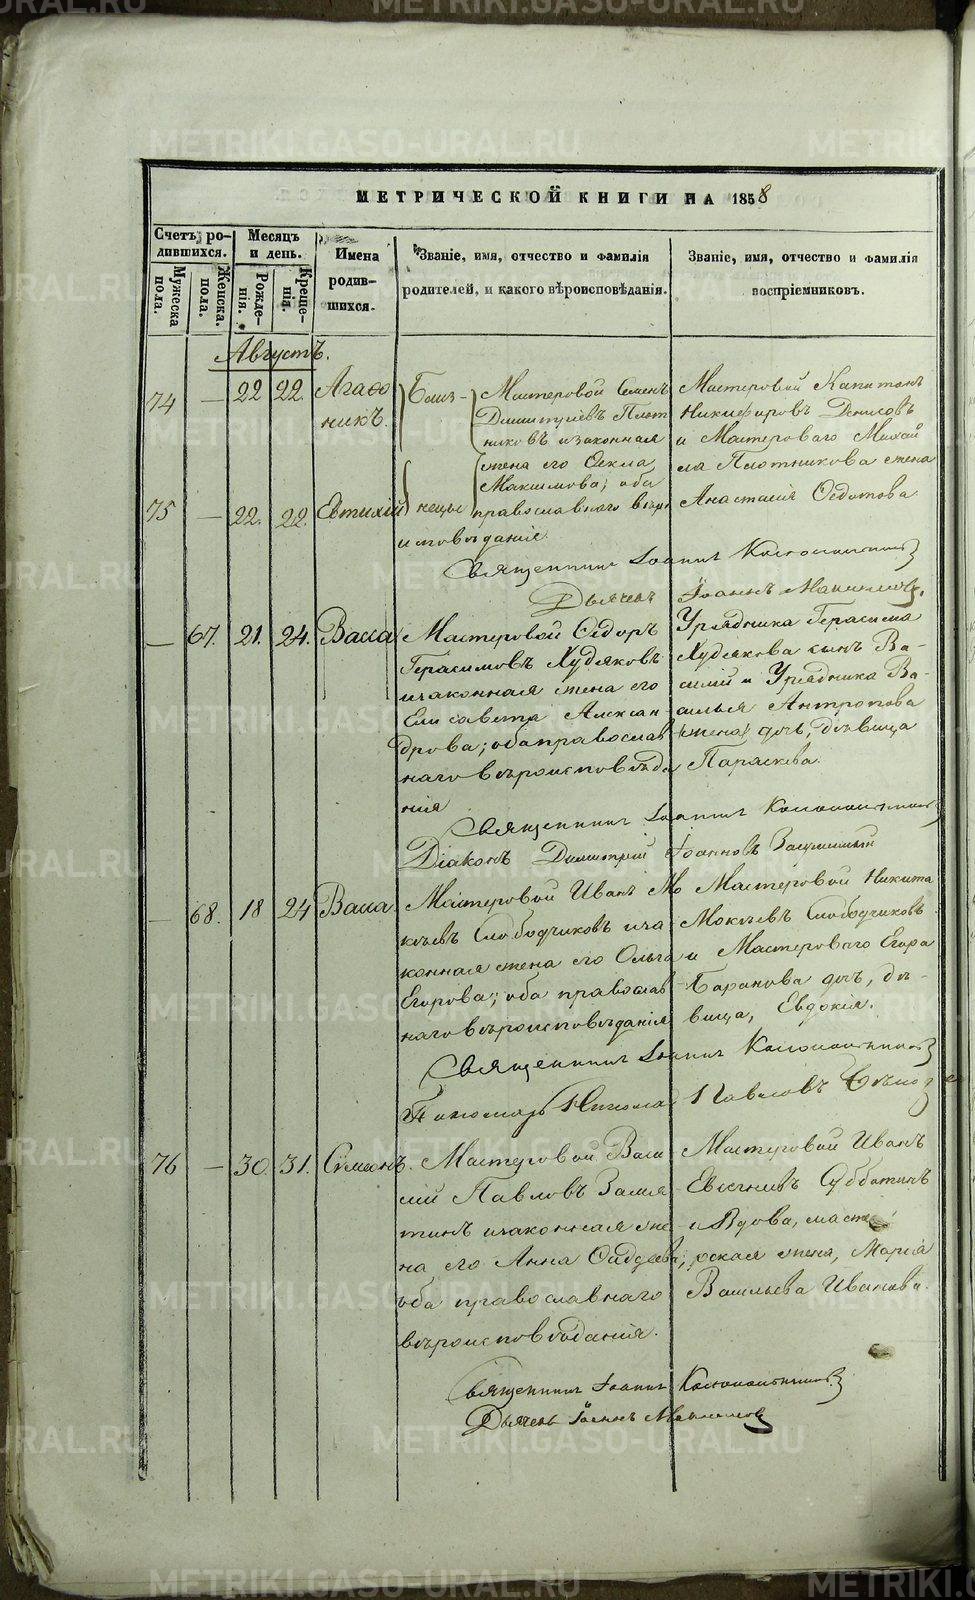 МЕТРИЧЕСКОЙ КНИГИ НА 1858
Счетъ родившихся.
Мужеска пола.
Женска пола.
Месяцъ и день.
Рожденія.
Крещенія.
Имена родившихся.
Званіе, имя, отчество и фамилія
родителей, и какого вѣроисповѣданія.
Званіе, имя, отчество и фамилія
воспріемниковъ.
Августъ.
74 — 22 22. Агафо
никъ.
75 — 22. 22. Евтихій
Близ-
нецы
Мастеровой Семенъ
Плот
никовъ изаконная
жена его Ѳекла
Максимова; оба
православного вѣро
исповѣданія.
Мастеровой Капитонъ
Никифоровъ Денисовъ
и Мастероваго Михаи
ла Плотникова жена
Анастасія Ѳедотова
Священникъ Іоаннъ
Дьячекъ Іоаннъ
— 67. 21. 24. Васса
Мастеровой Ѳедоръ
Герасимовъ Худяковъ
изаконная жена его
Елисавета Алексан
дрова; оба православ
наго вѣроисповѣда
нія
Урядника Герасима
Худякова сынъ Ва-
силій и Урядника Ва-
силья Антропова
дочь, дѣвица
Параскева.
Священникъ Іоаннъ
Діаконъ Димитрій Іоанновъ
— 68. 18 24 Васса.
Мастеровой Иванъ Мо
кѣевъ Слободчиковъ иза
конная жена его Ольга
Егорова; оба православ
наго вѣроисповѣданія
Мастеровой Никита
Мокѣевъ Слободчиковъ
и Мастероваго Егора
Баранова дочь, дѣ-
вица, Евдокія.
Священникъ Іоаннъ
Пономарь Николай Павловъ
76 — 30. 31. Сѵмеонъ.
Мастеровой Васи
лій Павловъ Замя
тинъ изаконная же
на его Анна
оба православнаго
вѣроисповѣданія.
Мастеровой Иванъ
Евгеніевъ Субботинъ
и Вдова, масте
рская жена, Марія
Васильева Иванова.
Священникъ Іоаннъ
Дьячекъ Іоаннъ
METRIKI.GASO-URAL.RU